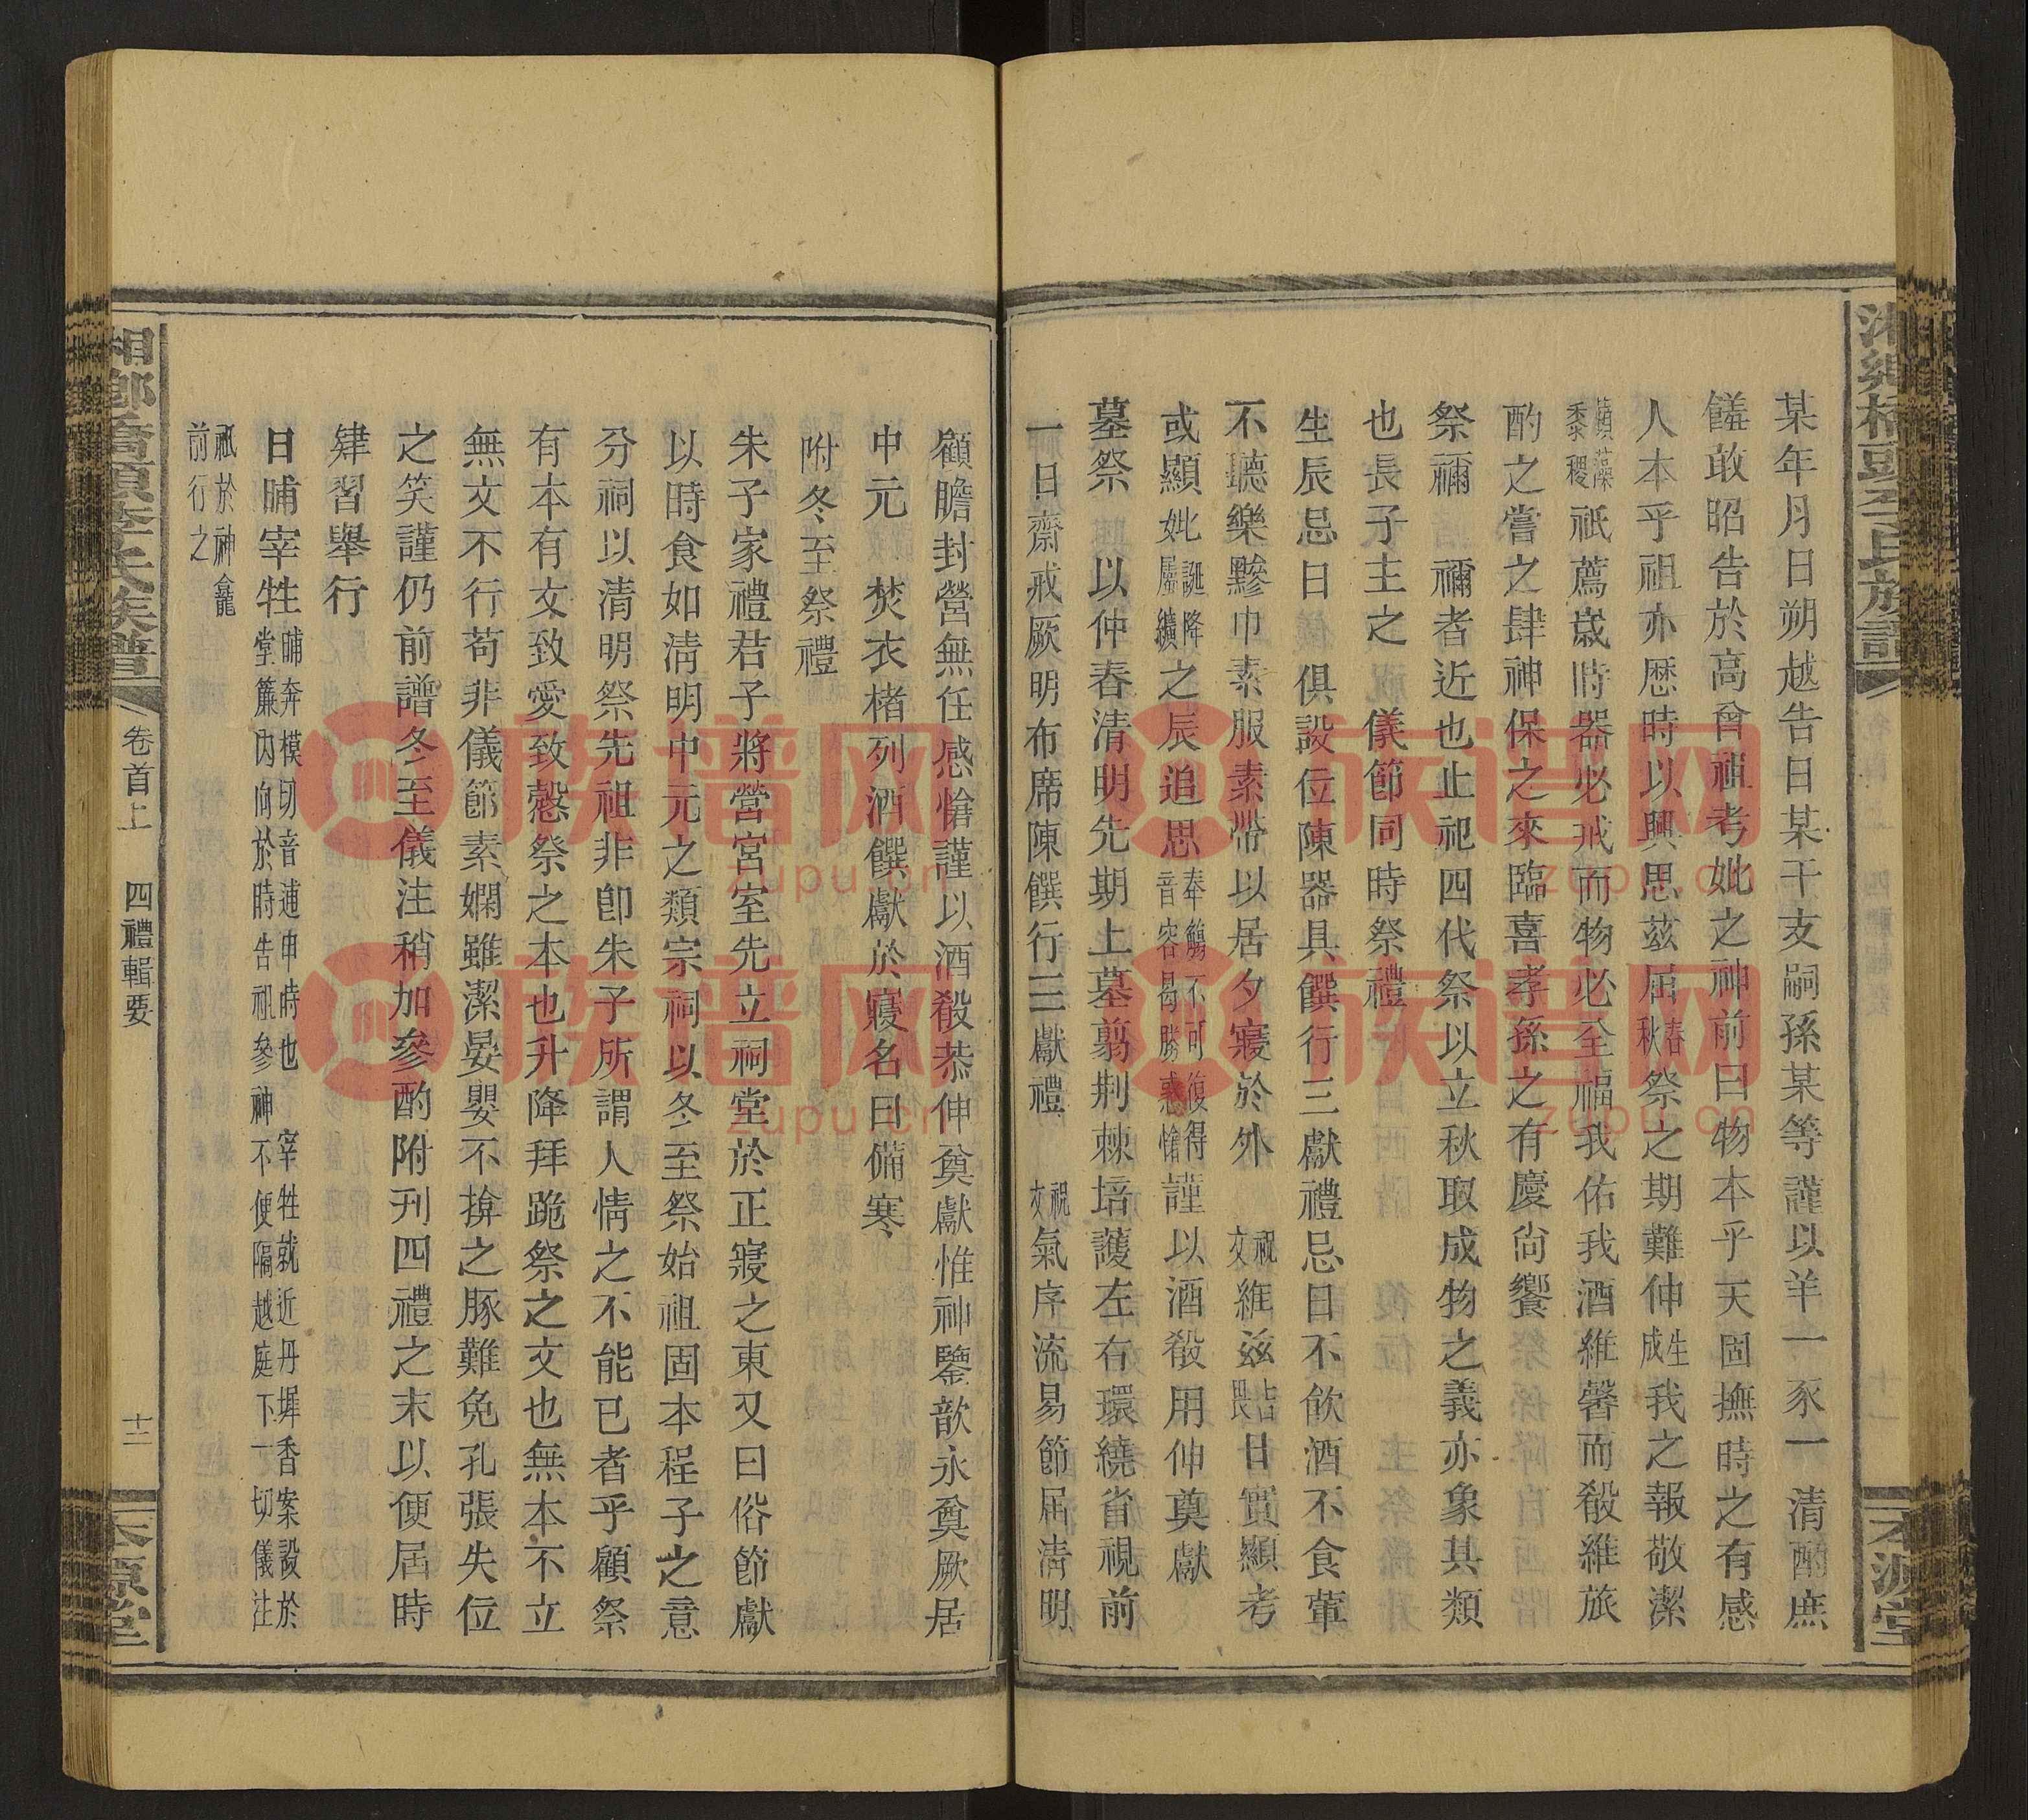 湘鄉橋頭李氏族譜
本源堂
某年月日朔越告日某干支嗣孫某等謹以羊一豕一清酌庶
饈敢昭告於高曾祖考妣之神前曰物本乎天固撫時之有感
人本乎祖亦歷時以興思茲屆春秋祭之期難伸生成我之報敬潔
蘋藻黍稷祇薦歲時器必戒而物必至福我佑我酒維馨而殽維旅
酌之嘗之肆神保之來臨喜孝孫之有慶尙饗
祭禰 禰者近也止祀四代祭以立秋取成物之義亦象其類
也長子主之 儀節同時祭禮
生辰忌日 俱設位陳器具饌行三獻禮忌日不飲酒不食葷
不聽樂黲巾素服素帶以居夕寢於外 祝文維茲 日實顯考
或顯妣誕降屬纊之辰追思奉觴不可復得音容曷勝慼愴謹以酒殽用伸奠獻
墓祭 以仲春清明先期上墓翦荆棘培護左右環繞省視前
一日齋戒厥明布席陳饌行三獻禮 祝文氣序流易節届清明
顧瞻封營無任感愴謹以酒殽恭伸奠獻惟神鑒歆永奠厥居
中元 焚衣楮列酒饌獻於寢名曰備寒
附冬至祭禮
朱子家禮君子將營宮室先立祠堂於正寢之東又曰俗節獻
以時食如清明中元之類宗祠以冬至祭始祖固本程子之意
分祠以清明祭先祖非卽朱子所謂人情之不能已者乎顧祭
有本有文致愛致慤祭之本也升降拜跪祭之文也無本不立
無文不行苟非儀節素嫻雖潔晏嬰不揜之豚難免孔張失位
之笑謹仍前譜冬至儀注稍加參酌附刊四禮之末以便屆時
肄習舉行
日晡宰牲晡奔模切音逋申時也 宰牲就近丹墀香案設於堂簾內向於時告祖參神不便隔越庭下一切儀注
祇於神龕前行之
湘鄉橋頭李氏族譜
卷首上
四禮輯要
十二
本源堂